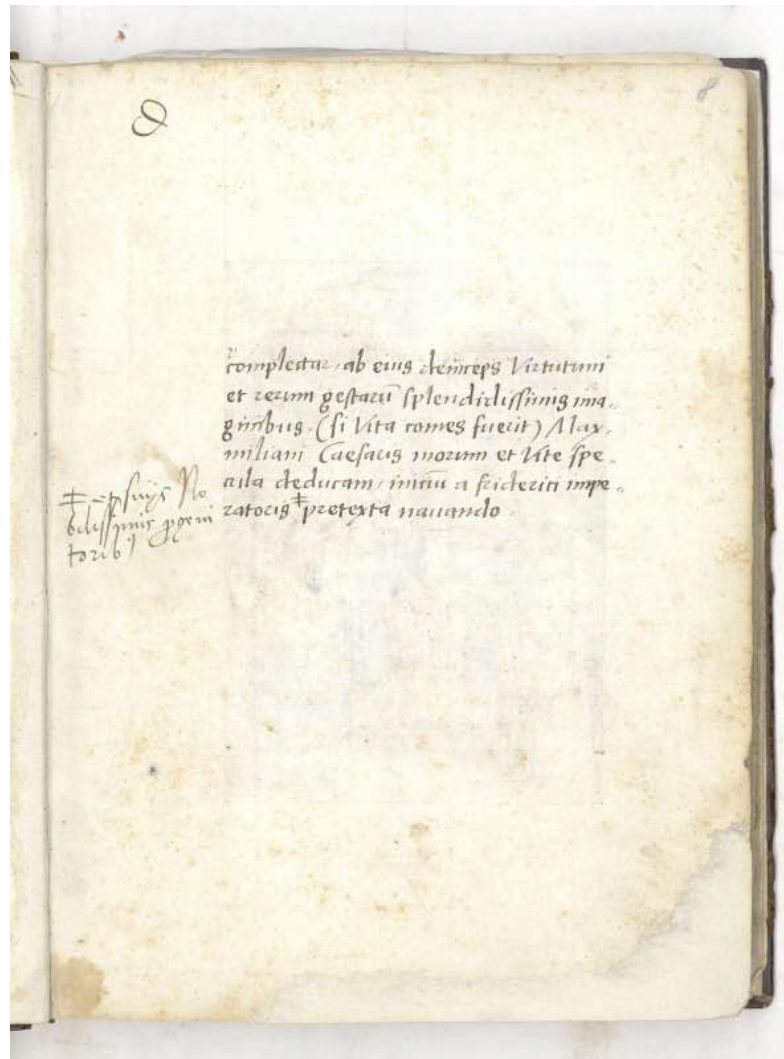 8
complectar, ab eius deinceps Virtutum
et rerum gestarū splendidissimis ima„
ginibus. (si Vita comes fuerit) Max„
miliani Caesaris morum et Vite spe„
cula deducam, iniciū a friderici impe„
ratoris ‡ pretexta nauando.
‡ suijs No
bilissimis